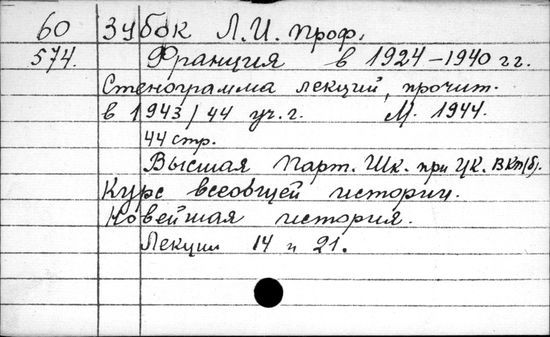 60 Зубок Л.И. проф.
574. Франция в 1924-1940 гг.
Стенограмма лекций, прочит.
в 1943/44 уч.г. М. 1944.
44 стр.
Высшая Парт. Шк. при ЦК. ВКП(б).
Курс всеобщей истории.
Новейшая история.
Лекции 14 и 21.